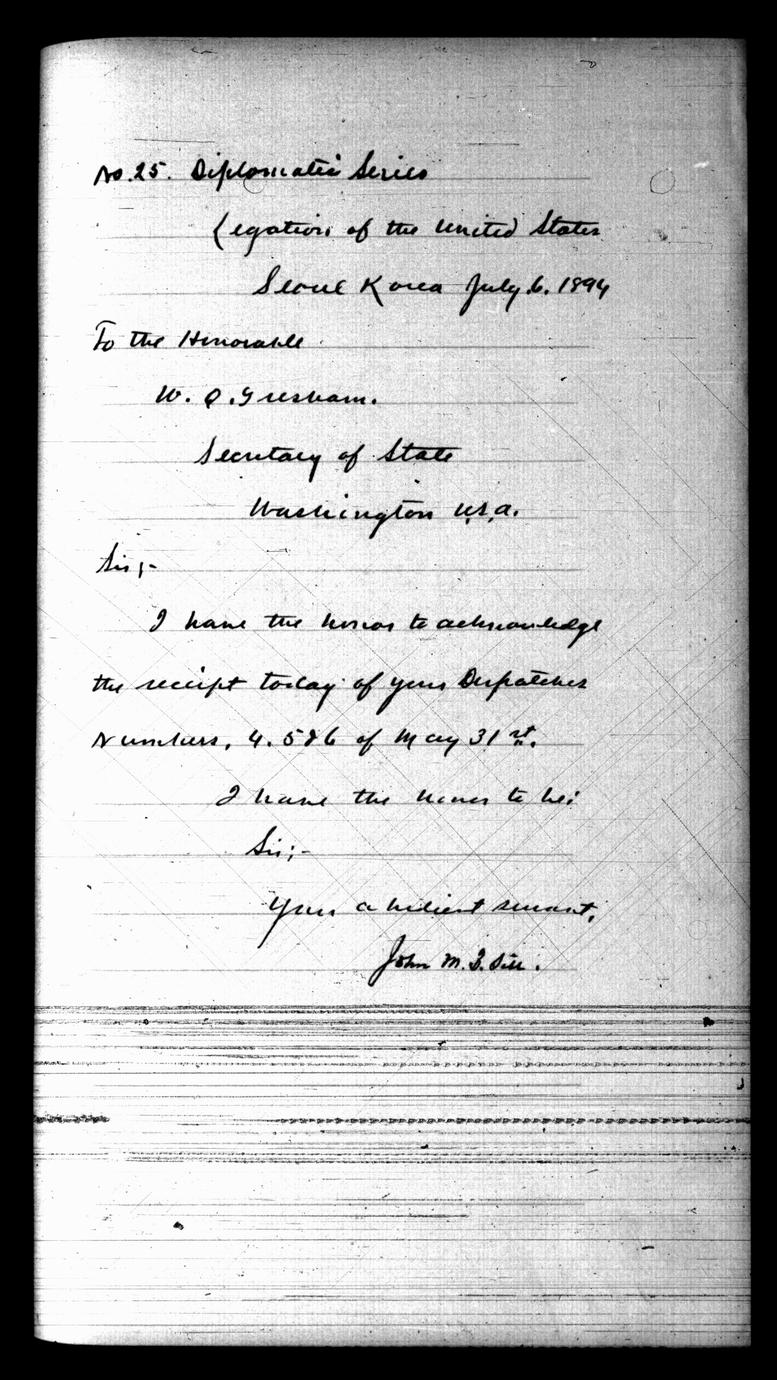 No. 25. Diplomatic Series
Legation of the United States
Seoul Korea July 6. 1894
To the Honorable
W. Q. Gresham.
Secretary of State
Washington U.S.A.
Sir;-
I have the honor to acknowledge
the receipt today of your Dispatches
Numbers, 4. 5 & 6 of May 31st.
I have the honor to be:
Sir;-
Your obedient servant,
John M. B. Sill.